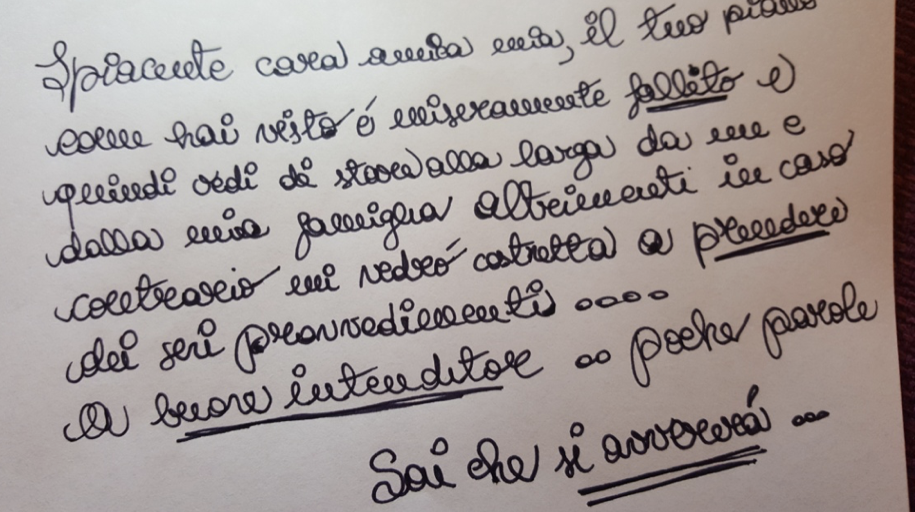 Spiacente cara amica mia, il tuo piano
come hai visto é miseramente fallito e
quindi vedi di stare alla larga da me e
dalla mia famiglia altrimenti in caso
contrario mi vedró costretta a prendere
dei seri provvedimenti ....
A buon intenditore .. poche parole
Sai che si avvererá ...